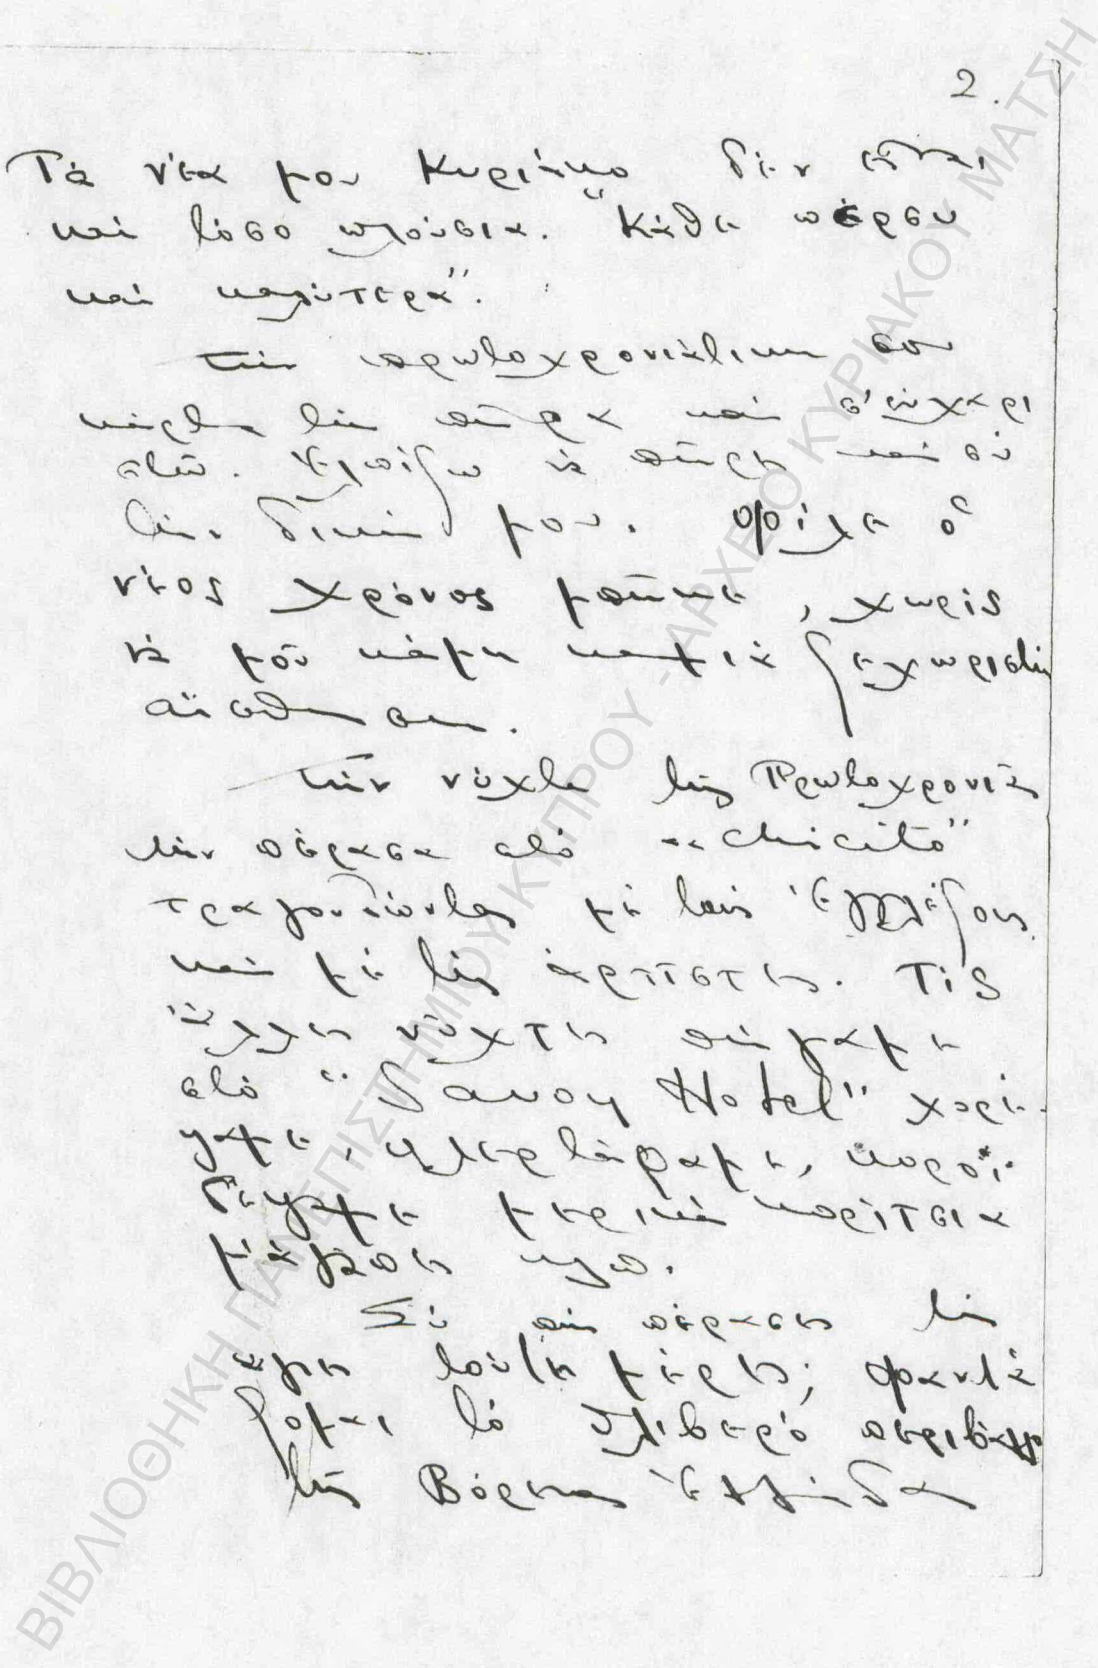 2.
Τά νέα μου Κυριάκο δέν εἶναι
καί τόσο πλούσια. "Κάθε πέρσυ
καί καλύτερα".
Τήν πρωτοχρονιάτικη σου
κάρτα τήν πῆρα καί σ' εὐχαρι
στῶ. Ἐλπίζω νά πῆρες καί σύ
τήν δική μου. Φίλε ὁ
νέος χρόνος μπῆκε, χωρίς
νά μοῦ κάμη καμιά ξεχωριστή
αἴσθηση.
Τήν νύχτα τῆς Πρωτοχρονιᾶς
τήν πέρασα στό "Chicito"
τραγουδώντας μέ τούς Ἐγγλέζους
καί μέ τίς ἀρτίστες. Τίς
ἄλλες νύχτες πήγαμε
στό "Savoy Hotel" χορέ-
ψαμε, φλερτάραμε, κοροϊ-
δέψαμε μερικά κορίτσια
μάγκες κλπ.
Σύ πῶς πέρασες τίς
ἅγιες τοῦτες μέρες; Φαντά
ζομαι τό θλιβερό περιβάλλο
τῆς Βόρειας Ἑλλάδας
ΒΙΒΛΙΟΘΗΚΗ ΠΑΝΕΠΙΣΤΗΜΙΟΥ ΚΥΠΡΟΥ - ΑΡΧΕΙΟ ΚΥΡΙΑΚΟΥ ΜΑΤΣΗ